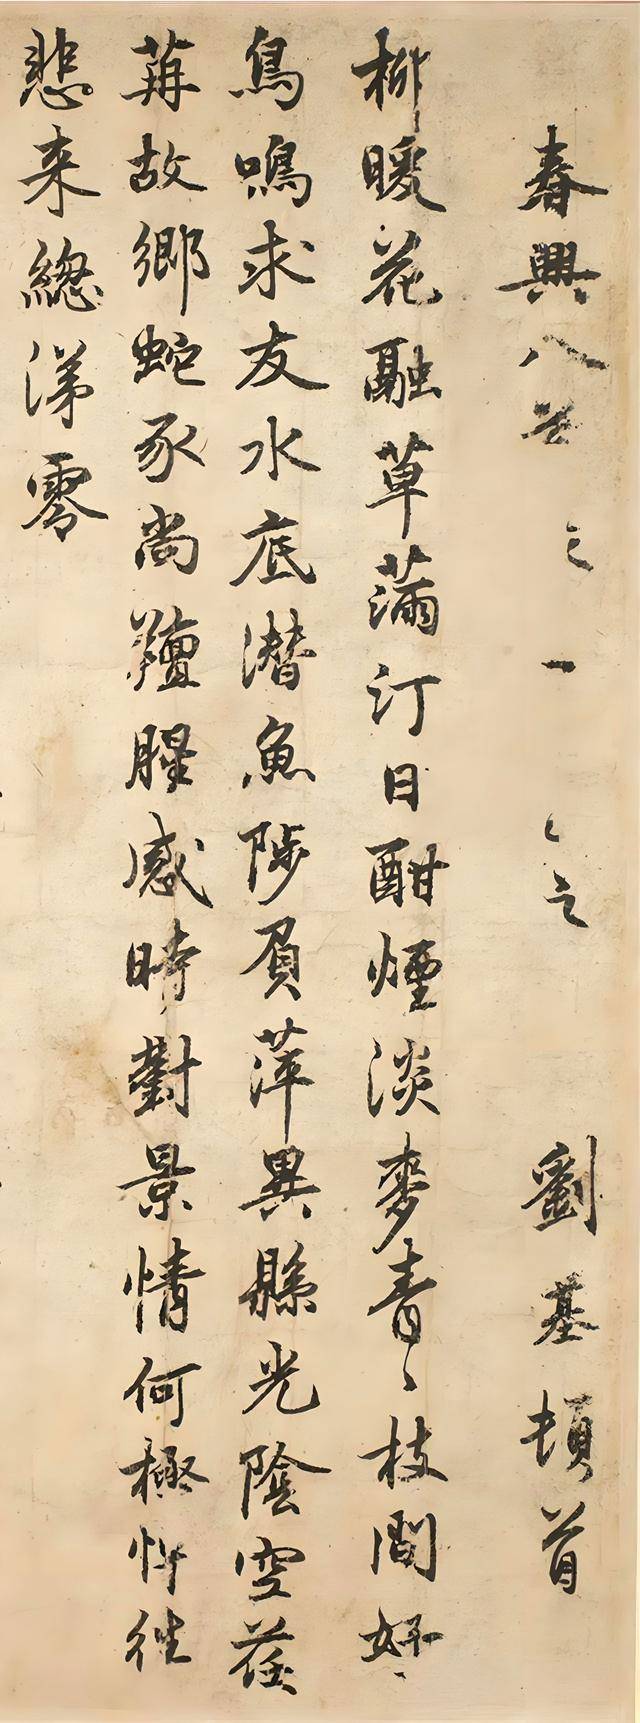 春興八首之一 劉基頓首
柳暖花融草滿汀日酣煙淡麥青〻枝間好
鳥鳴求友水底潛魚陟負萍異縣光陰空荏
苒故鄉蛇豕尚羶腥感時對景情何極忤往
悲来總涕零